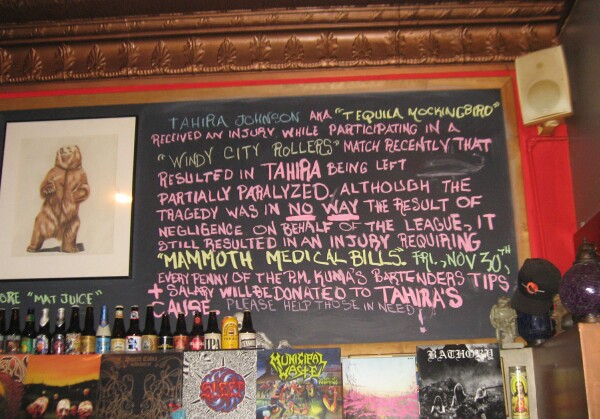 TAHIRA JOHNSON AKA "TEQUILA MOCKINGBIRD"
RECEIVED AN INJURY WHILE PARTICIPATING IN A
"WINDY CITY ROLLERS" MATCH RECENTLY THAT
RESULTED IN TAHIRA BEING LEFT
PARTIALLY PARALYZED. ALTHOUGH THE
TRAGEDY WAS IN NO WAY THE RESULT OF
NEGLIGENCE ON BEHALF OF THE LEAGUE, IT
STILL RESULTED IN AN INJURY REQUIRING
"MAMMOTH MEDICAL BILLS". FRI., NOV 30,TH
EVERY PENNY OF THE P.M. KUMA'S BARTENDERS TIPS
+ SALARY WILL BE DONATED TO TAHIRA'S
CAUSE. PLEASE HELP THOSE IN NEED!
ORE "MAT JUICE"
IPA
MUNICIPAL
WASTE
BATHORY